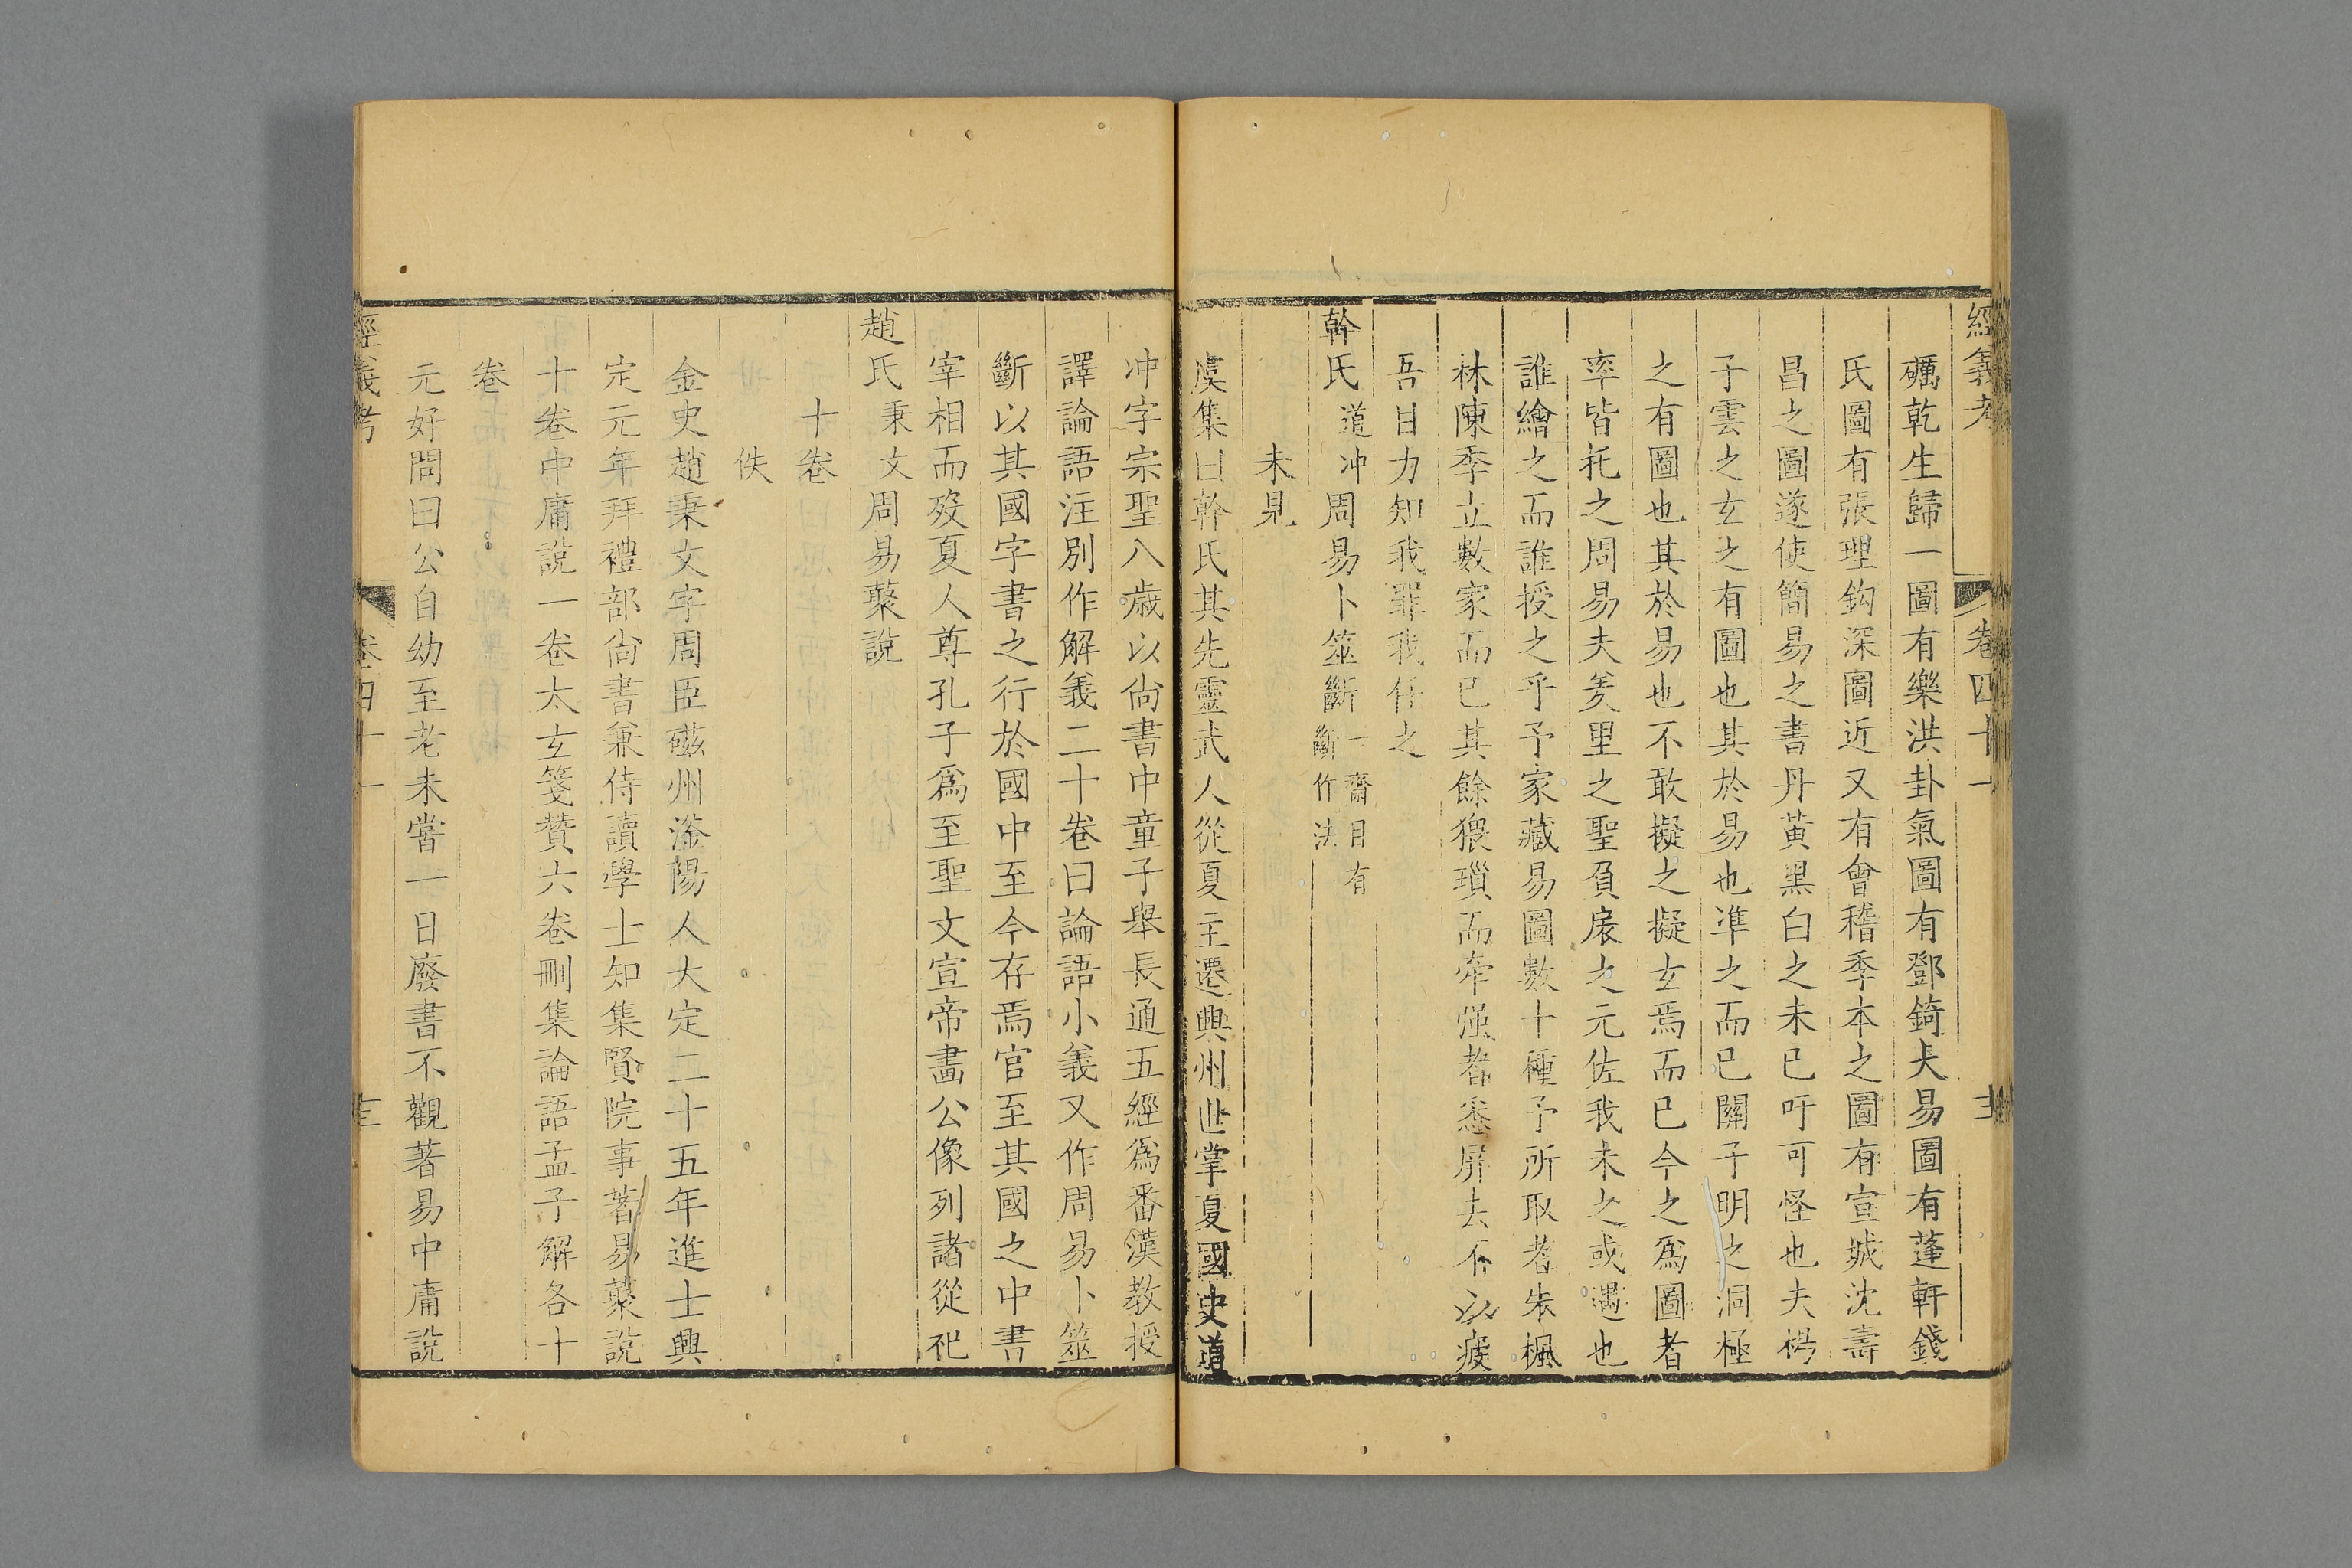 經義考 卷四十一
礪乾生歸一圖有樂洪卦氣圖有鄧錡大易圖有蓬軒錢
氏圖有張理鈎深圖近又有會稽季本之圖有宣城沈壽
昌之圖遂使簡易之書丹黃黑白之未已吁可怪也夫楊
子雲之玄之有圖也其於易也準之而已關子明之洞極
之有圖也其於易也不敢擬之擬玄焉而已今之爲圖者
率皆托之周易夫羑里之聖負扆之元佐我未之或遇也
誰繪之而誰授之乎予家藏易圖數十種予所取者朱楓
林陳季立數家而已其餘猥瑣而牽强者悉屏去不以疲
吾目力知我罪我任之
斡氏道冲周易卜筮斷一齋目有斷作法
未見
虞集曰斡氏其先靈武人從夏主遷興州世掌夏國史道
冲字宗聖八歲以尚書中童子舉長通五經爲番漢教授
譯論語注別作解義二十卷曰論語小義又作周易卜筮
斷以其國字書之行於國中至今存焉官至其國之中書
宰相而歿夏人尊孔子爲至聖文宣帝畫公像列諸從祀
趙氏秉文周易藂說
十卷
佚
金史趙秉文字周臣磁州滏陽人大定二十五年進士興
定元年拜禮部尚書兼侍讀學士知集賢院事著易藂說
十卷中庸說一卷太玄箋贊六卷刪集論語孟子解各十
卷
元好問曰公自幼至老未嘗一日廢書不觀著易中庸說
經義考 卷四十一